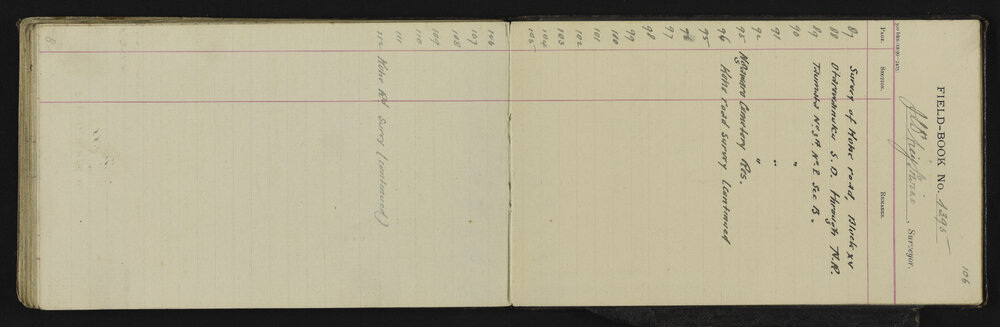 106
FIELD-BOOK No. 1295
, Surveyor.
500 bks./10/30—2475]
PAGE. SECTION. REMARKS.
87 Survey of Hohe road, Block XV
88 Otaramanuku S.D. through N.R.
89 No. 2 Sec B.
90 "
91 "
92 "
93 Cemetery Res.
95
96 Hohe road Survey Continued
97
98
99
100
101
102
103
104
105
106
107
108
109
110
111
112 Hohe Rd Survey (continued)
8